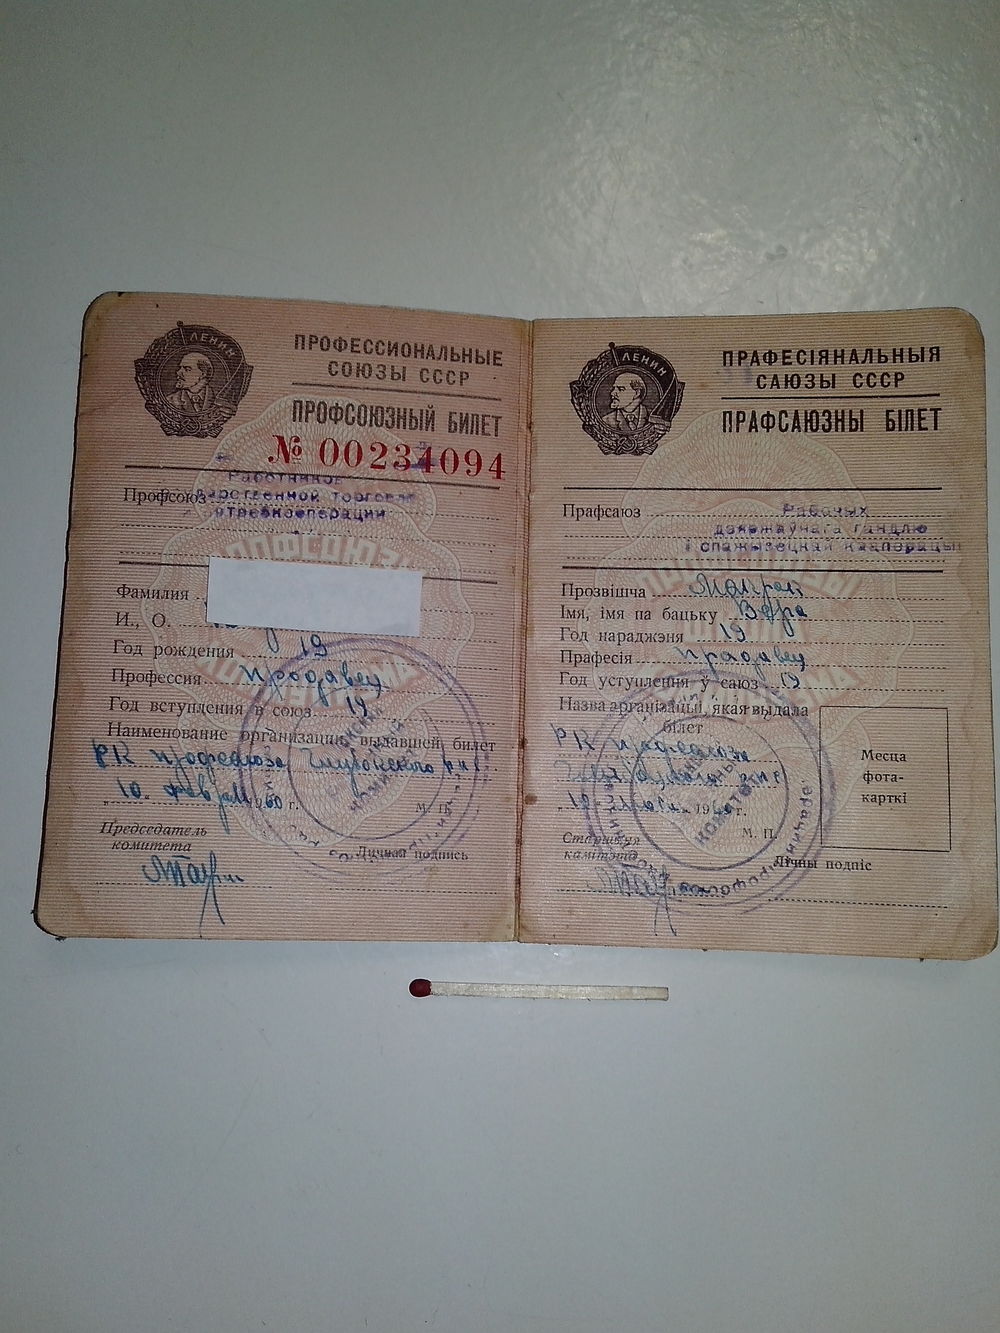 ЛЕНИН
ПРОФЕССИОНАЛЬНЫЕ
СОЮЗЫ СССР
ПРОФСОЮЗНЫЙ БИЛЕТ
№ 00234094
Работников
Профсоюз
дарственной торговли
отребкооперации
Фамилия
И., О.
Год рождения 19
Профессия Продавец
Год вступления в союз 19
Наименование организации, выдавшей билет
РК профсоюза
„10“ февраля 1960 г.
М. П.
Председатель
комитета
Личная подпись
ЛЕНИН
ПРАФЕСІЯНАЛЬНЫЯ
САЮЗЫ СССР
ПРАФСАЮЗНЫ БІЛЕТ
Прафсаюз Рабочых
дзяржаўнага гандлю
і спажывецкай кааперацыі
Прозвішча
Імя, імя па бацьку Вера
Год нараджэня 19
Прафесія Прадавец
Год уступлення ў саюз 19
Назва арганізацыі, якая выдала
білет
РК прафсаюза
1960 г.
М. П.
Старшыня
камітэта
Лічны подпіс
Месца
фота-
карткі